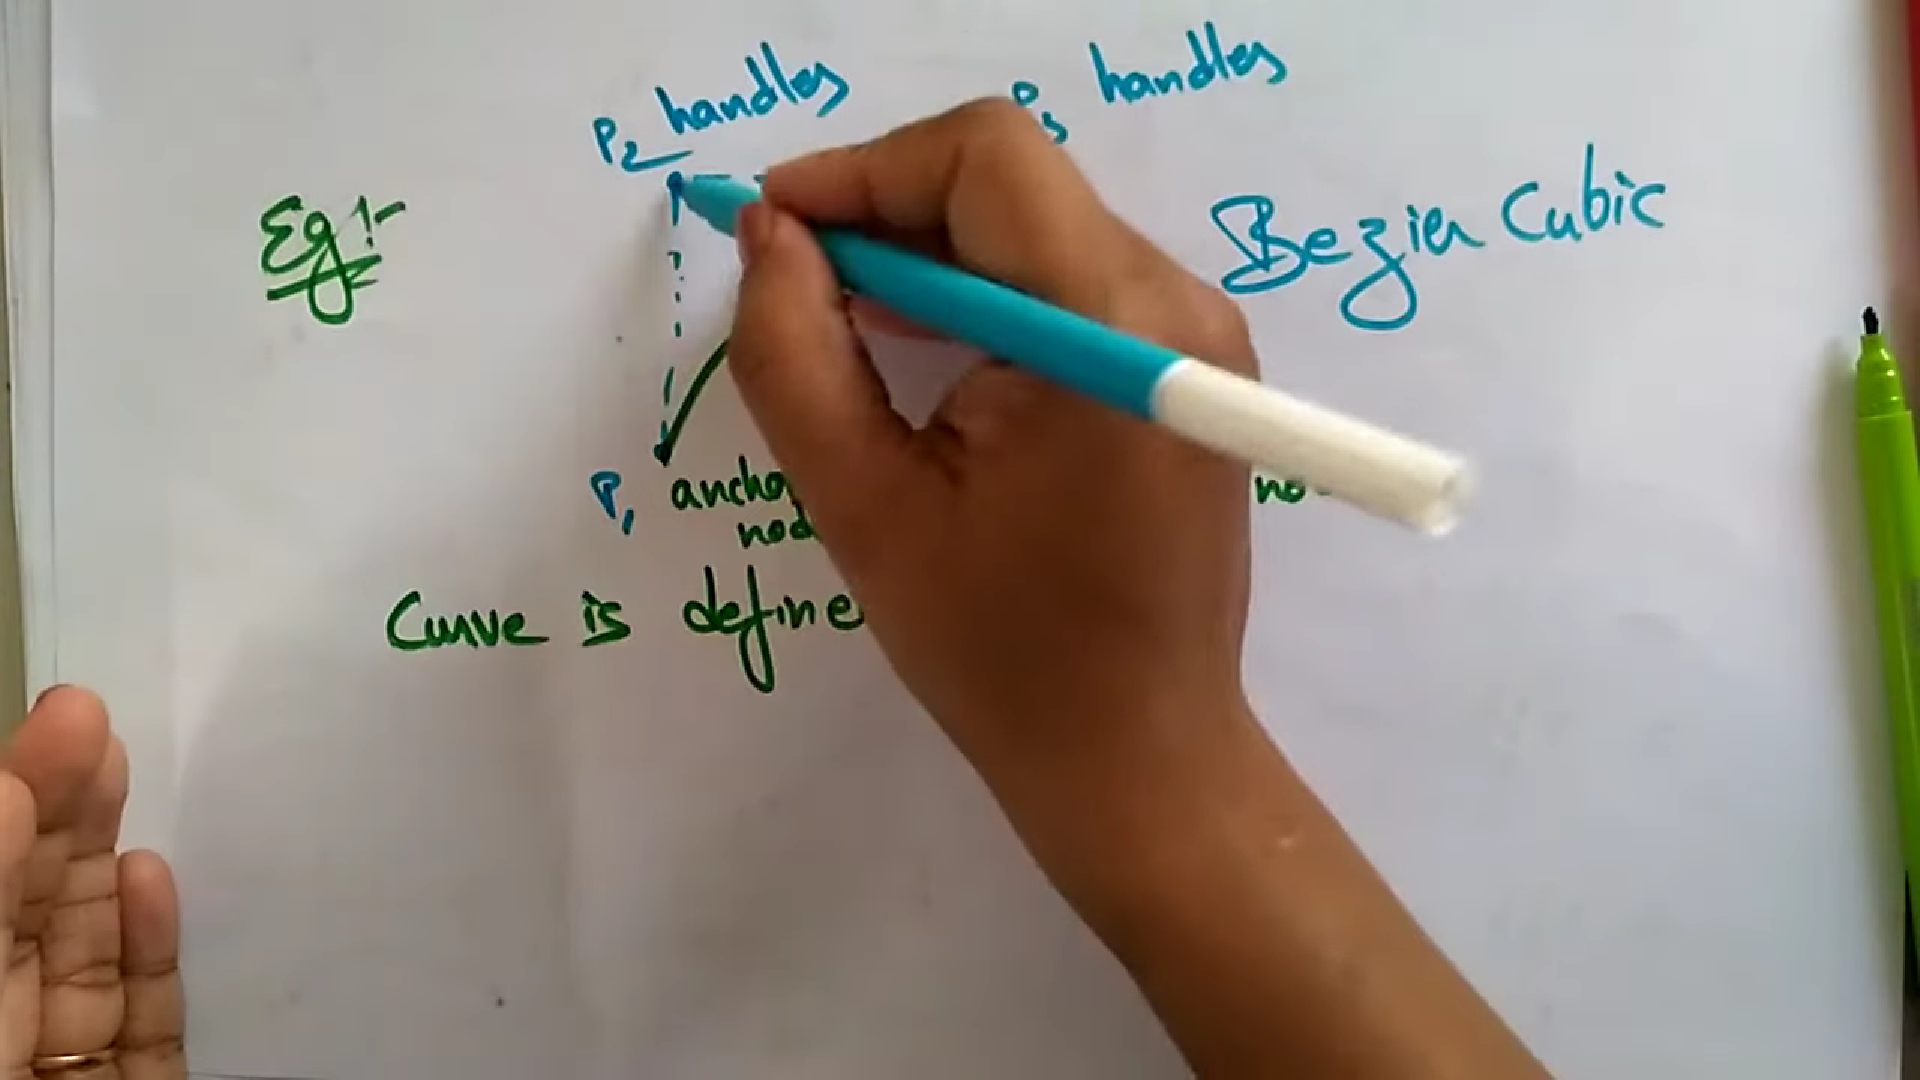 P2 handles
P3 handles
Eg:-
Bezier Cubic
P1 ancho
nod
no
Curve is define